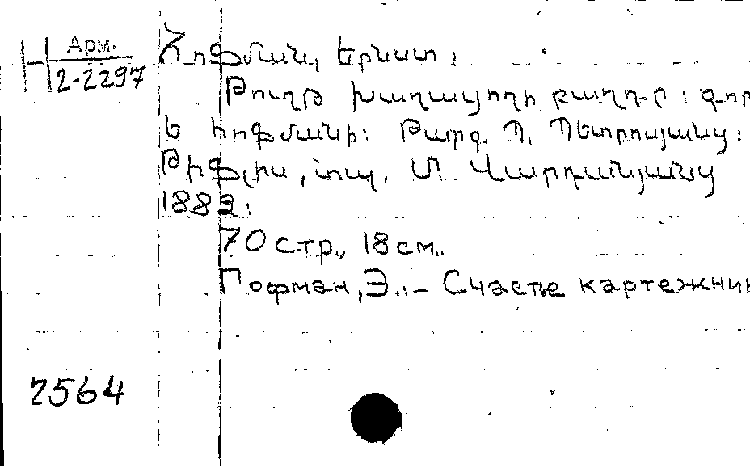 Н Арм.
2-2297
Հոֆման, Երնստ:
Թուղթ խաղացողի բաղդը: գոր
Ե հոֆմանի: Թարգ. Պ. Պետրոսյանց:
Թիֆլիս, տպ. Մ. Վարդանյանց
1882:
70 стр., 18 см.
Гофман, Э. – Счастье картежник
7564